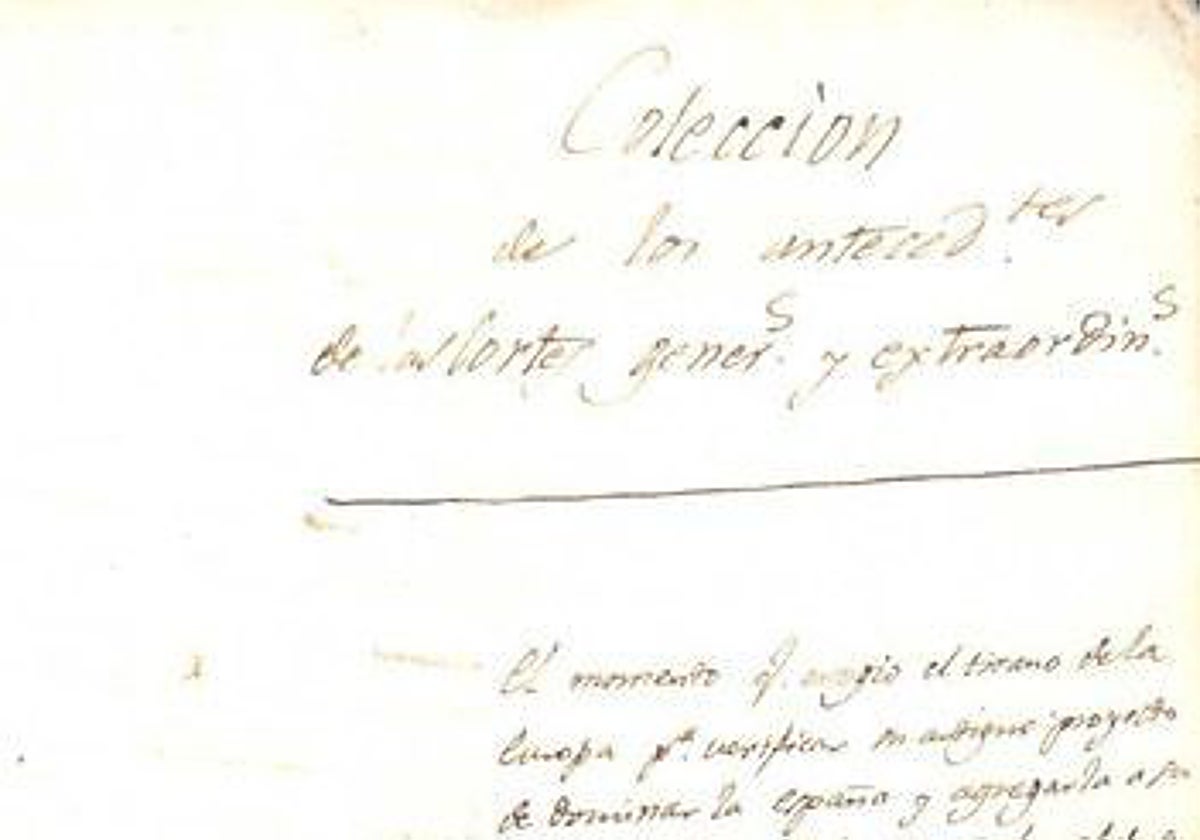 Coleccion
de los anteced.tes
de las Cortes gener.s y extraordin.s
El momento q. el tirano de la
Europa p.a verificar su antiguo proyecto
de dominar la españa y agregarla a su